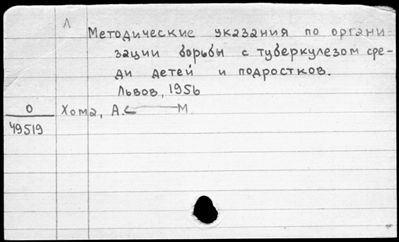 Л
Методические указания по органи
зации борьбы с туберкулезом сре-
ди детей и подростков.
Львов, 1956
О Хома, А. М
49519